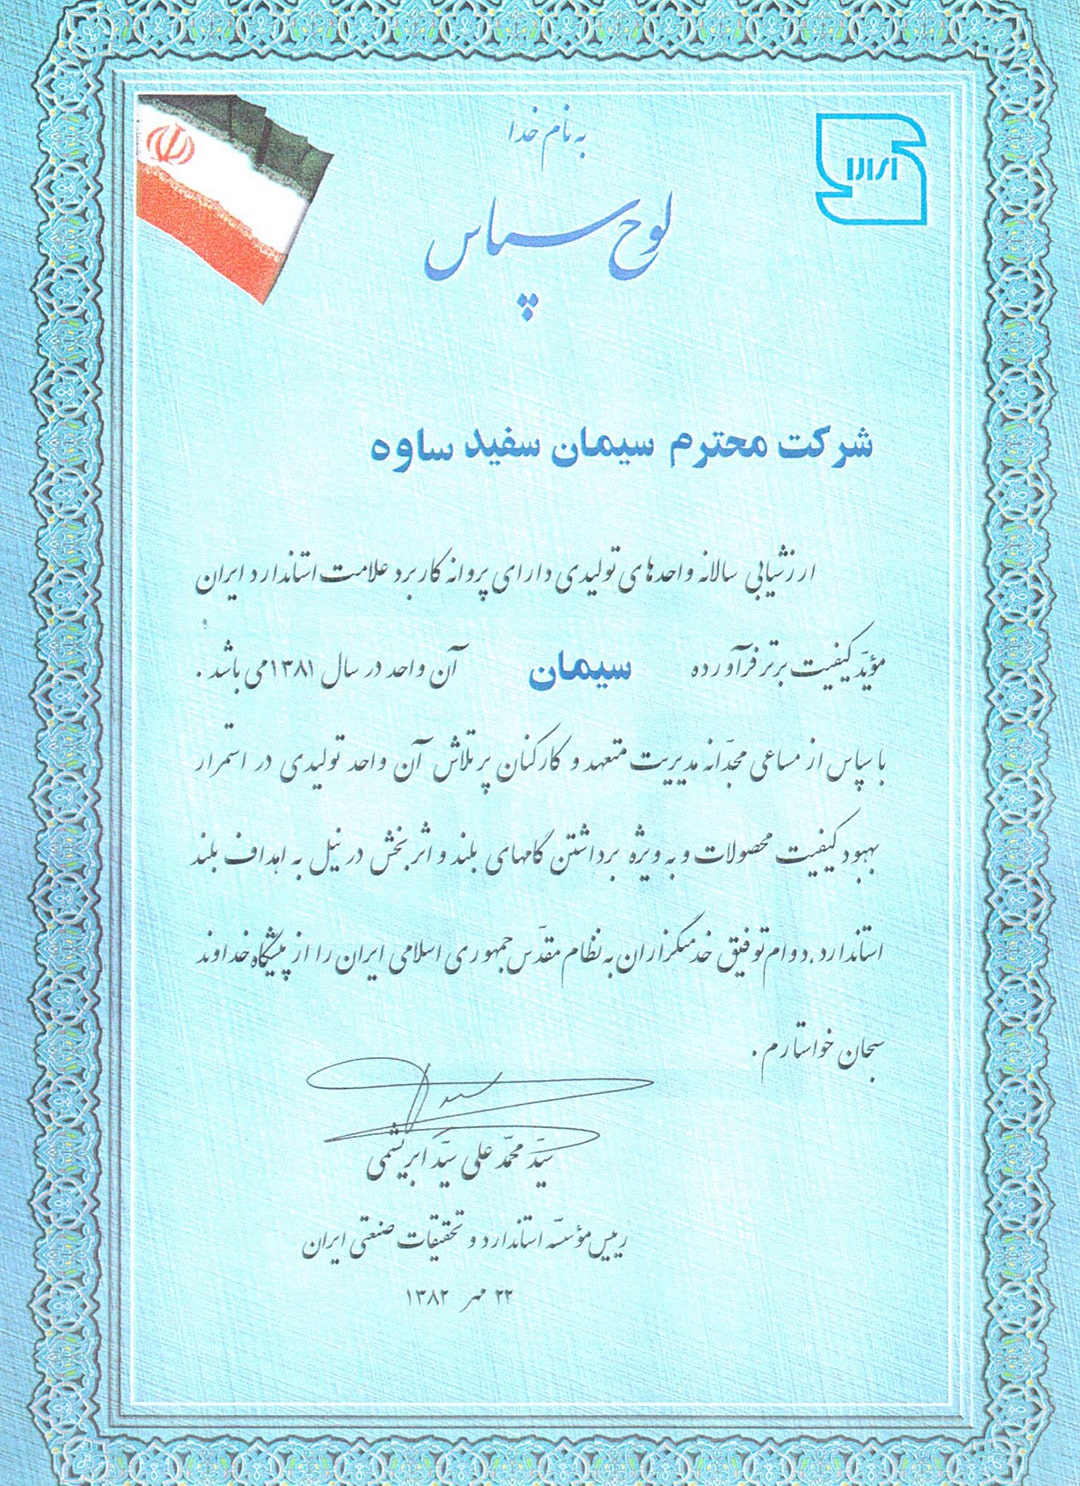 به نام خدا
ایران
لوح سپاس
شرکت محترم سیمان سفید ساوه
ارزشیابی سالانه واحدهای تولیدی دارای پروانه کاربرد علامت استاندارد ایران
مؤیّد کیفیت برتر فرآورده سیمان آن واحد در سال ۱۳۸۱ می باشد .
با سپاس از مساعی مجدّانه مدیریت متعهد و کارکنان پر تلاش آن واحد تولیدی در استمرار
بهبود کیفیت محصولات و به ویژه برداشتن گامهای بلند و اثربخش در نیل به اهداف بلند
استاندارد ، دوام توفیق خدمتگزاران به نظام مقدّس جمهوری اسلامی ایران را از پیشگاه خداوند
سبحان خواستارم .
سیّد محمّد علی سیّد ابریشمی
رییس مؤسسّه استاندارد و تحقیقات صنعتی ایران
۲۲ مهر ۱۳۸۲